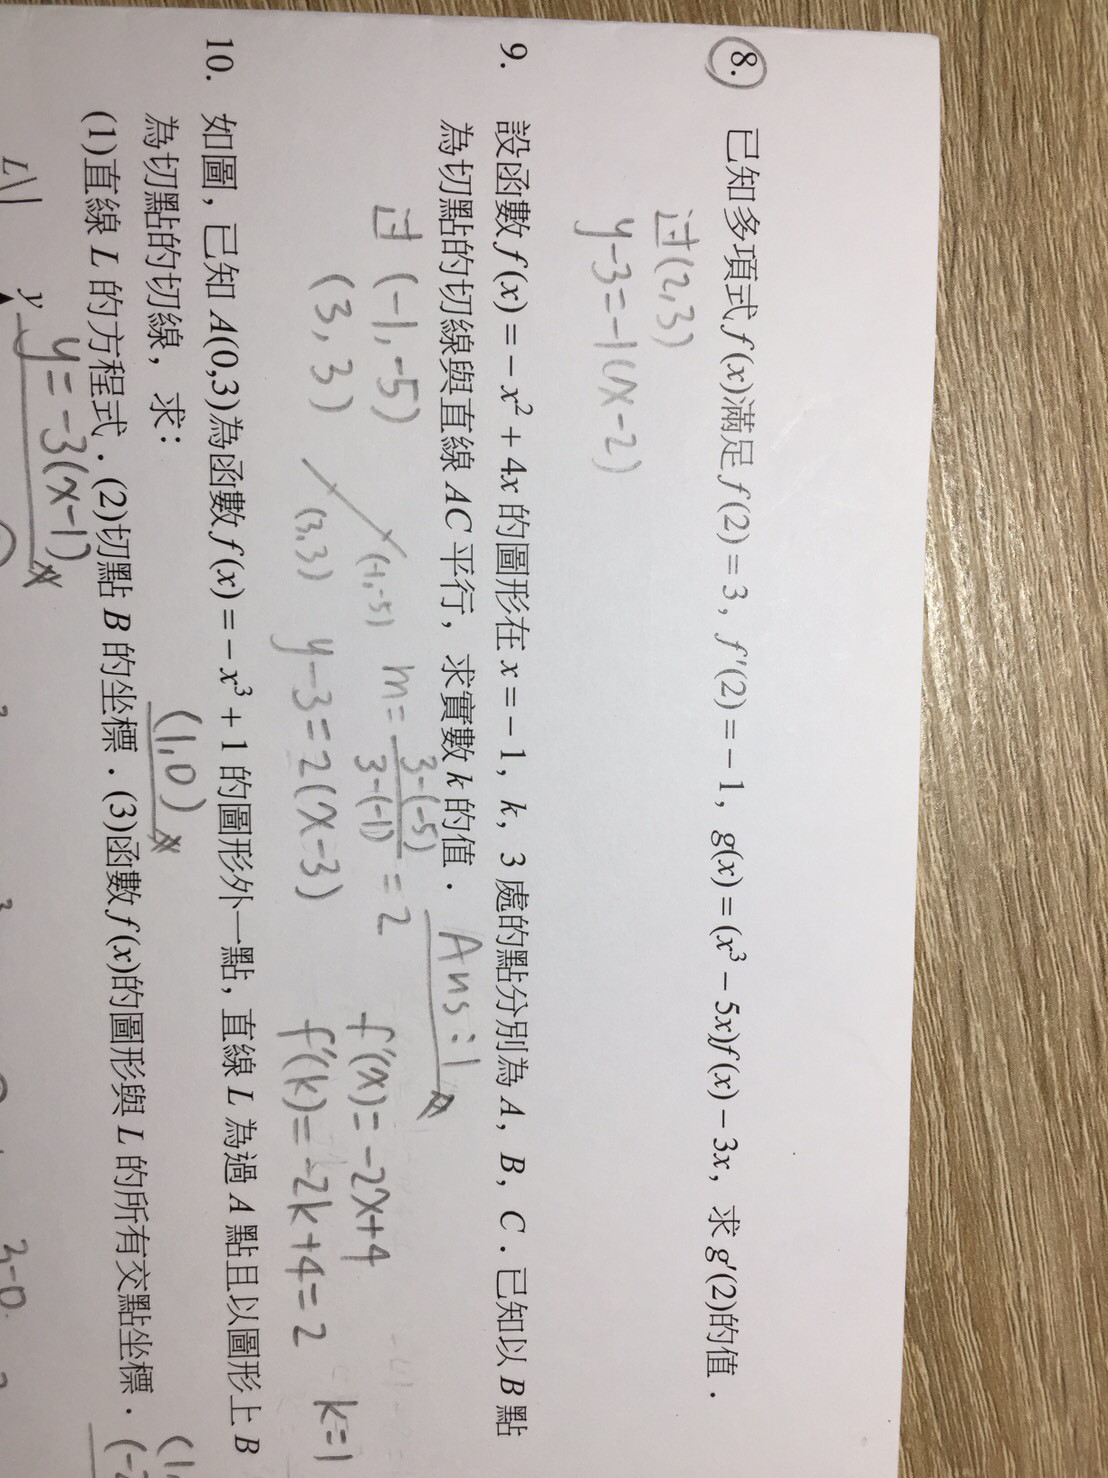 8. 已知多項式 f(x)滿足 f(2)=3, f′(2)=−1, g(x)=(x³−5x)f(x)−3x, 求 g′(2)的值.
过(2,3)
y-3=-1(x-2)
9. 設函數 f(x)=−x²+4x 的圖形在 x=−1, k, 3 處的點分別為 A, B, C. 已知以 B 點
為切點的切線與直線 AC 平行, 求實數 k 的值. Ans:1
过 (-1,-5)
(3,3)
(-1,-5)
(3,3)
m= 3-(-5) / 3-(-1) =2
y-3=2(x-3)
f′(x)=-2x+4
f′(k)=-2k+4=2
k=1
10. 如圖, 已知 A(0,3)為函數 f(x)=−x³+1 的圖形外一點, 直線 L 為過 A 點且以圖形上 B
為切點的切線, 求:
(1,0)
(1)直線 L 的方程式. (2)切點 B 的坐標. (3)函數 f(x)的圖形與 L 的所有交點坐標.
y=-3(x-1)
y
L